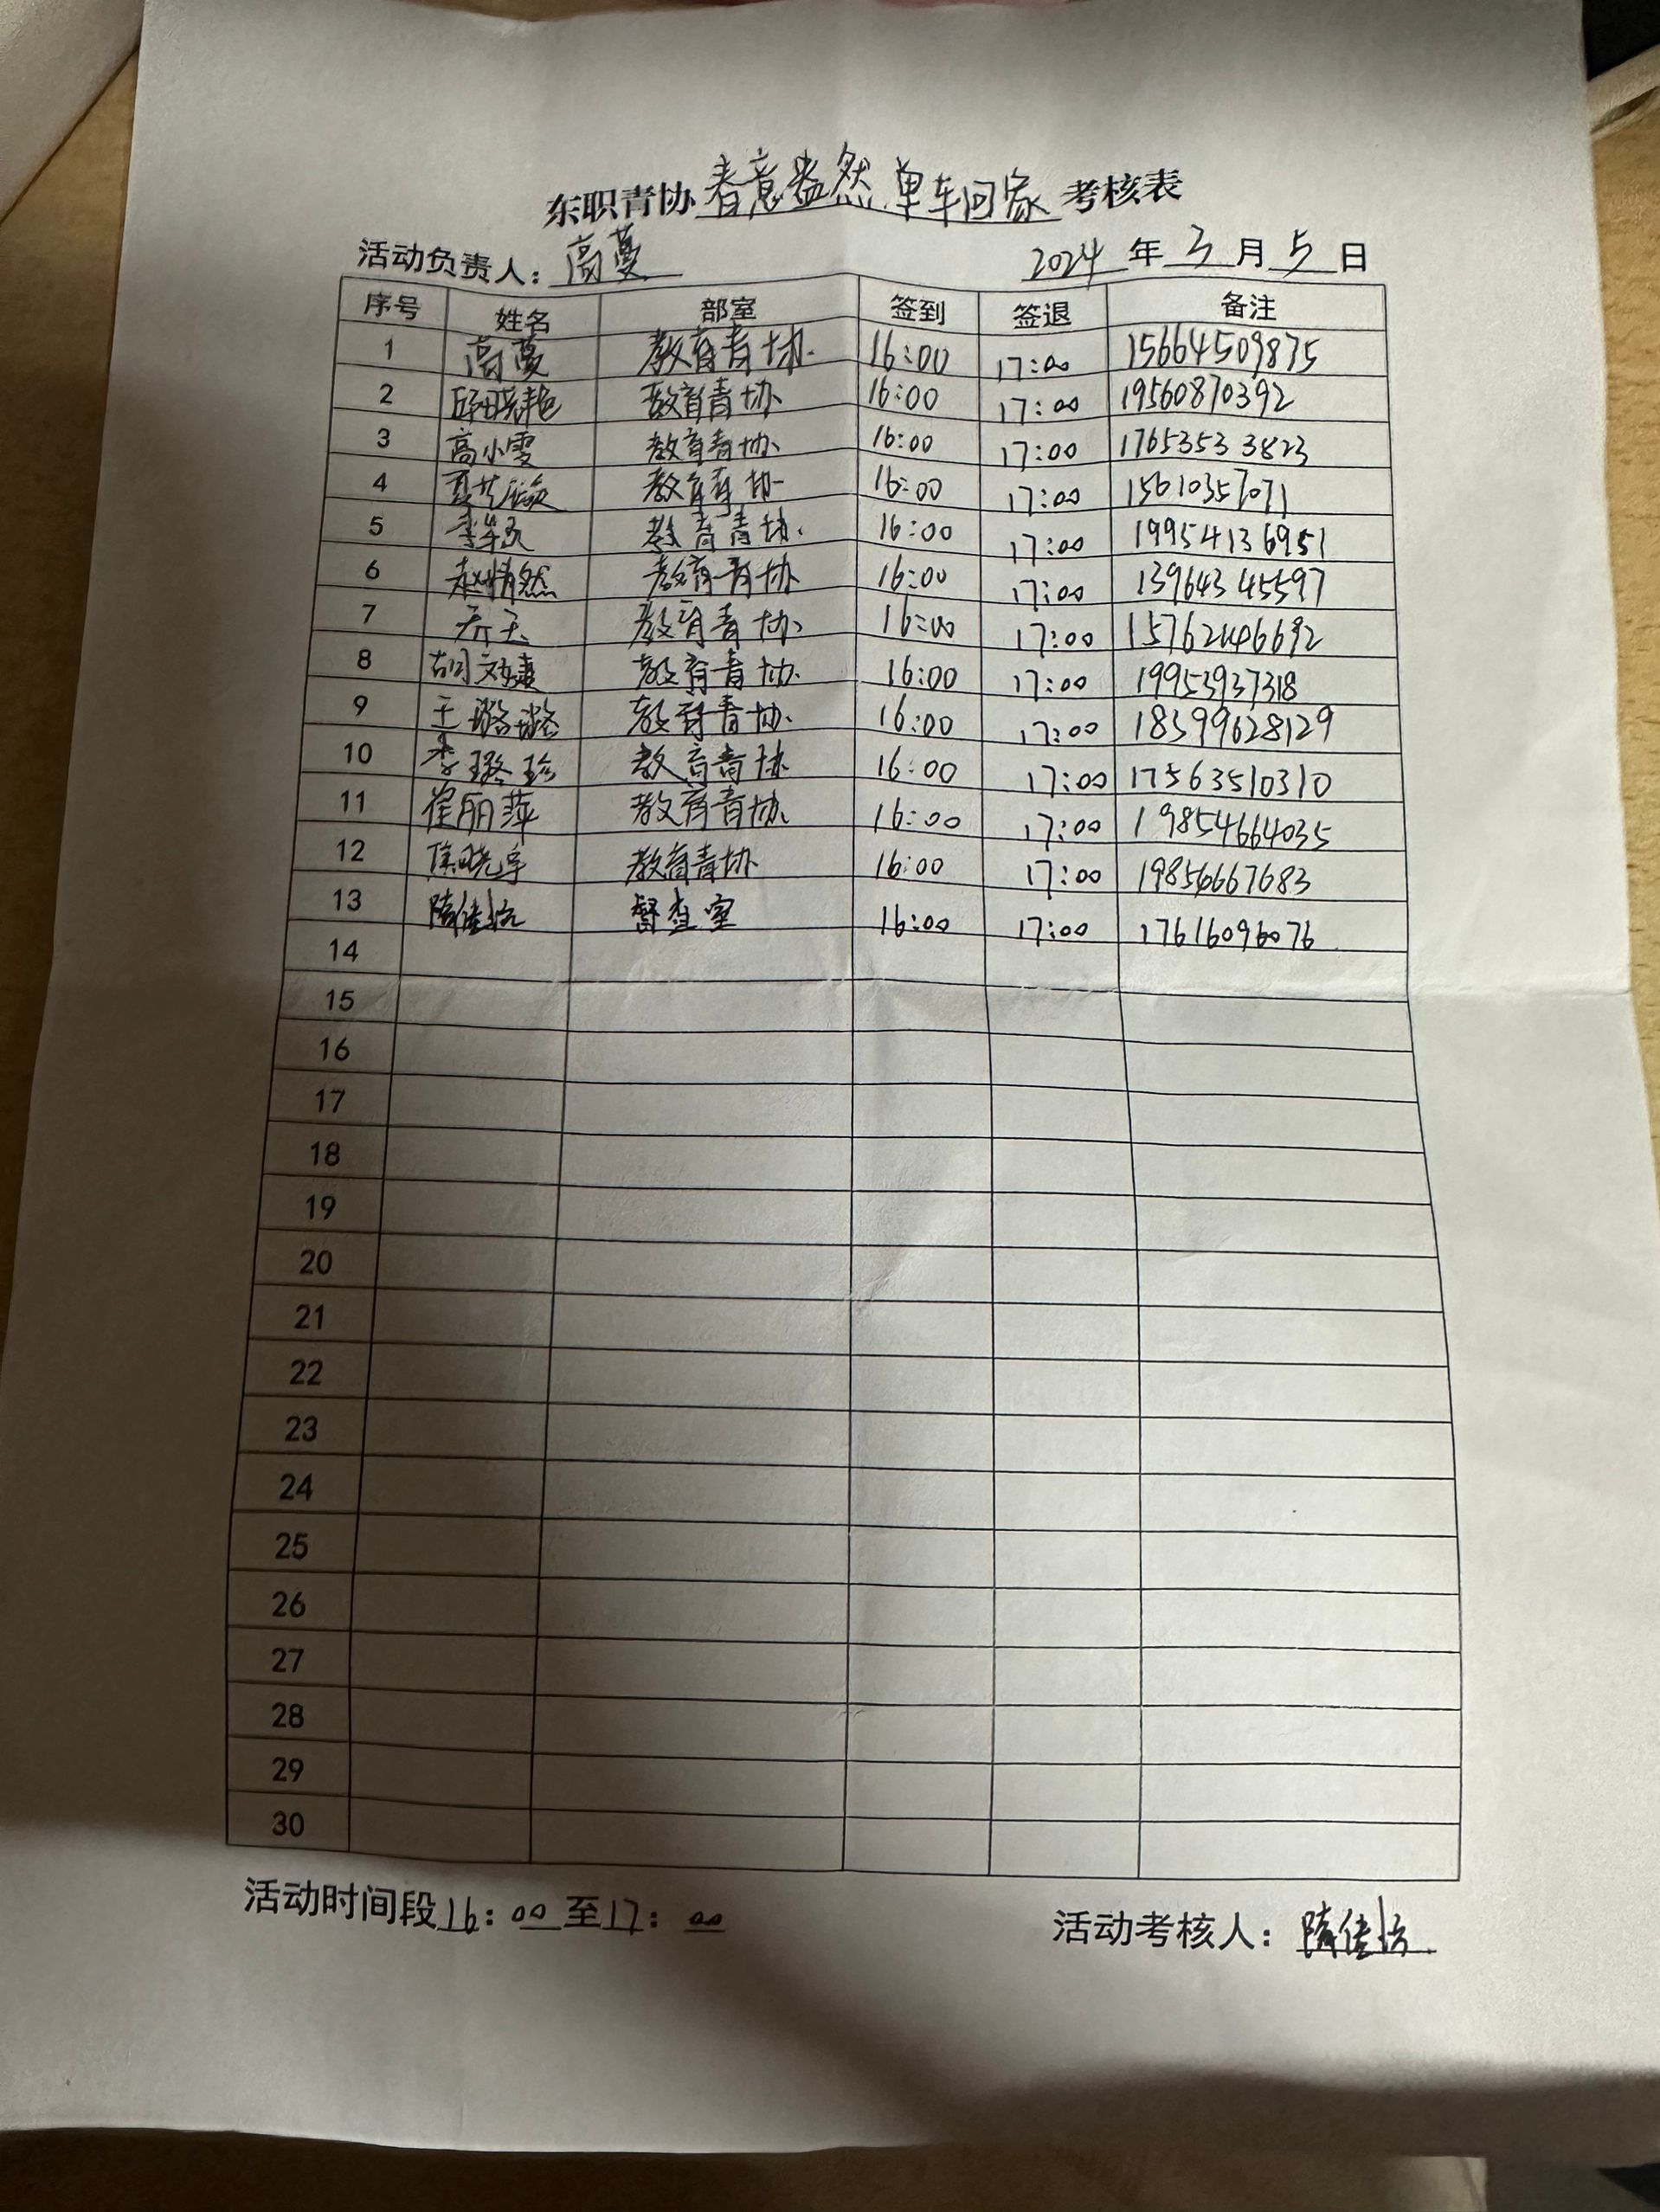 东职青协 春意盎然 单车回家 考核表
活动负责人： 高蔓 2024 年 3 月 5 日
序号 姓名 部室 签到 签退 备注
1 高蔓 教育青协 16:00 17:00 15664509875
2 教育青协 16:00 17:00 19560870392
3 高小雯 教育青协 16:00 17:00 17653533823
4 教育青协 16:00 17:00 15610357071
5 教育青协 16:00 17:00 19954136951
6 赵情然 教育青协 16:00 17:00 13964345597
7 乔玉 教育青协 16:00 17:00
8 教育青协 16:00 17:00 19953937318
9 王璐璐 教育青协 16:00 17:00 18599628129
10 李璐珍 教育青协 16:00 17:00 17563510310
11 崔丽萍 教育青协 16:00 17:00 19854664035
12 教育青协 16:00 17:00 19856667683
13 隋佳怡 督查室 16:00 17:00 17616096076
14
15
16
17
18
19
20
21
22
23
24
25
26
27
28
29
30
活动时间段 16: 00 至 17: 00 活动考核人： 隋佳怡